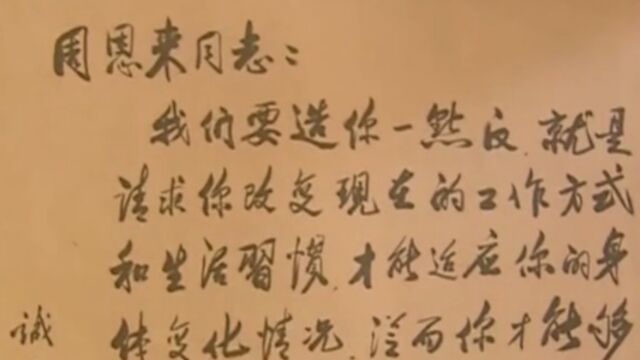 周恩来同志：
我们要造你一点反，就是
请求你改变现在的工作方式
和生活習惯，才能适应你的身
体变化情况，从而你才能够
誠